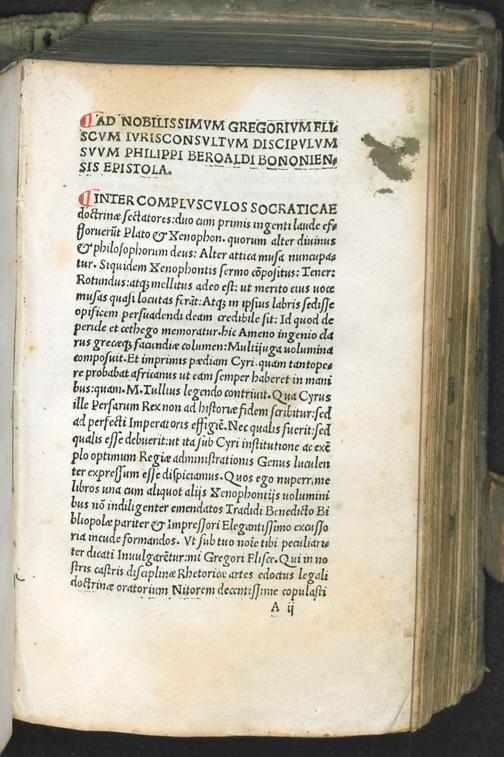 ¶AD NOBILISSIMVM GREGORIVM FLI⸗
SCVM IVRISCONSVLTVM DISCIPVLVM
SVVM PHILIPPI BEROALDI BONONIEN⸗
SIS EPISTOLA.
¶INTER COMPLVSCVLOS SOCRATICAE
doctrinæ sectatores:duo cum primis ingenti laude ef⸗
floruerũt Plato & Xenophon. quorum alter diuinus
& philosophorum deus: Alter attica musa nuncupa⸗
tur. Siquidem Xenophontis sermo cõpositus: Tener:
Rotundus:atq; mellitus adeo est: ut merito eius uoce
musas quasi locutas ferãt: Atq; in ipsius labris sedisse
opificem persuadendi deam credibile sit: Id quod de
pericle et cethego memoratur. hic Ameno ingenio cla
rus grecæq; facundiæ columen: Multijuga uolumina
composuit. Et imprimis pædiam Cyri. quam tantope⸗
re probabat africanus ut eam semper haberet in mani
bus: quam. M. Tullius legendo contriuit. Qua Cyrus
ille Persarum Rex non ad historiæ fidem scribitur: sed
ad perfecti Imperatoris effigiẽ. Nec qualis fuerit: sed
qualis esse debuerit: ut ita sub Cyri institutione ac exẽ
plo optimum Regiæ administrationis Genus luculen
ter expressum esse dispiciamus. Quos ego nuperrime
libros una cum aliquot alijs Xenophontijs uolumini
bus nõ indiligenter emendatos Tradidi Benedicto Bi
bliopolæ pariter & Impressori Elegantissimo excusso
ria incude formandos. Vt sub tuo noĩe tibi peculiari⸗
ter dicati Inuulgarẽtur: mi Gregori Flisce. Qui in no
stris castris disciplinæ Rhetoricæ artes edoctus legali
doctrinæ oratorium Nitorem decentissime copulasti
A ij